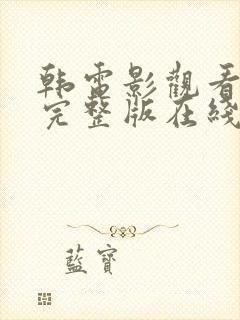 韩電影觀看
完整版在綫
藍寶